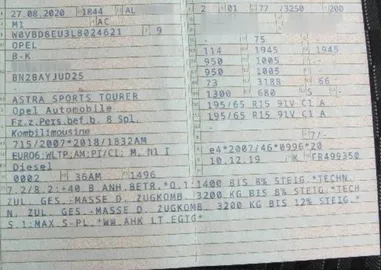 27.08.2020 1844 AL 2 01 77 /3250
M1 AC
W0VBD8EU3L8024621 9 - 75 -
OPEL 114 1945 1945
B-K 950 1005 -
950 1005 -
BN2BAYJUD25 73 3188 66
1300 680 5 -
ASTRA SPORTS TOURER 195/65 R15 91V C1 A
Opel Automobile 195/65 R15 91V C1 A
Fz.z.Pers.bef.b. 8 Spl.
Kombilimousine 7/-
715/2007*2018/1832AM e4*2007/46*0996*20
EURO6;WLTP;AM;PI/CI; M, N1 I 10.12.19 K FR499350
Diesel
0002 36AM 1496
7.2/8.2:+40 B.ANH.BETR.*O.1:1400 BIS 8% STEIG.*TECH
ZUL. GES.-MASSE D. ZUGKOMB. 3200 KG BIS 8% STEIG.*TECH
N. ZUL. GES.-MASSE D. ZUGKOMB. 3200 KG BIS 12% STEIG.*
S.1:MAX.S-PL.*WW.AHK LT.EGTG*